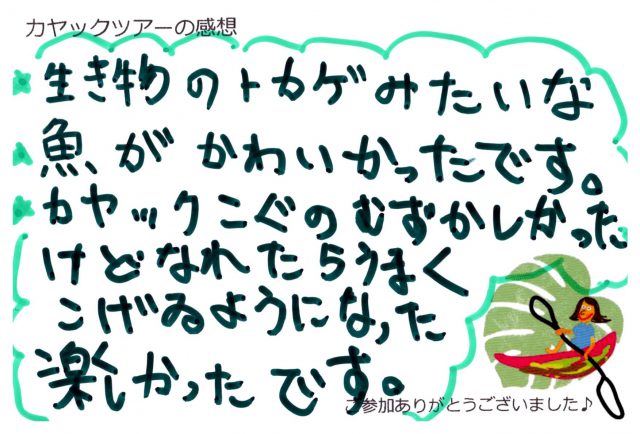 カヤックツアーの感想
生き物のトカゲみたいな
魚がかわいかったです。
カヤックこぐのむずかしかった
けどなれたらうまく
こげるようになった
楽しかったです。
ご参加ありがとうございました♪